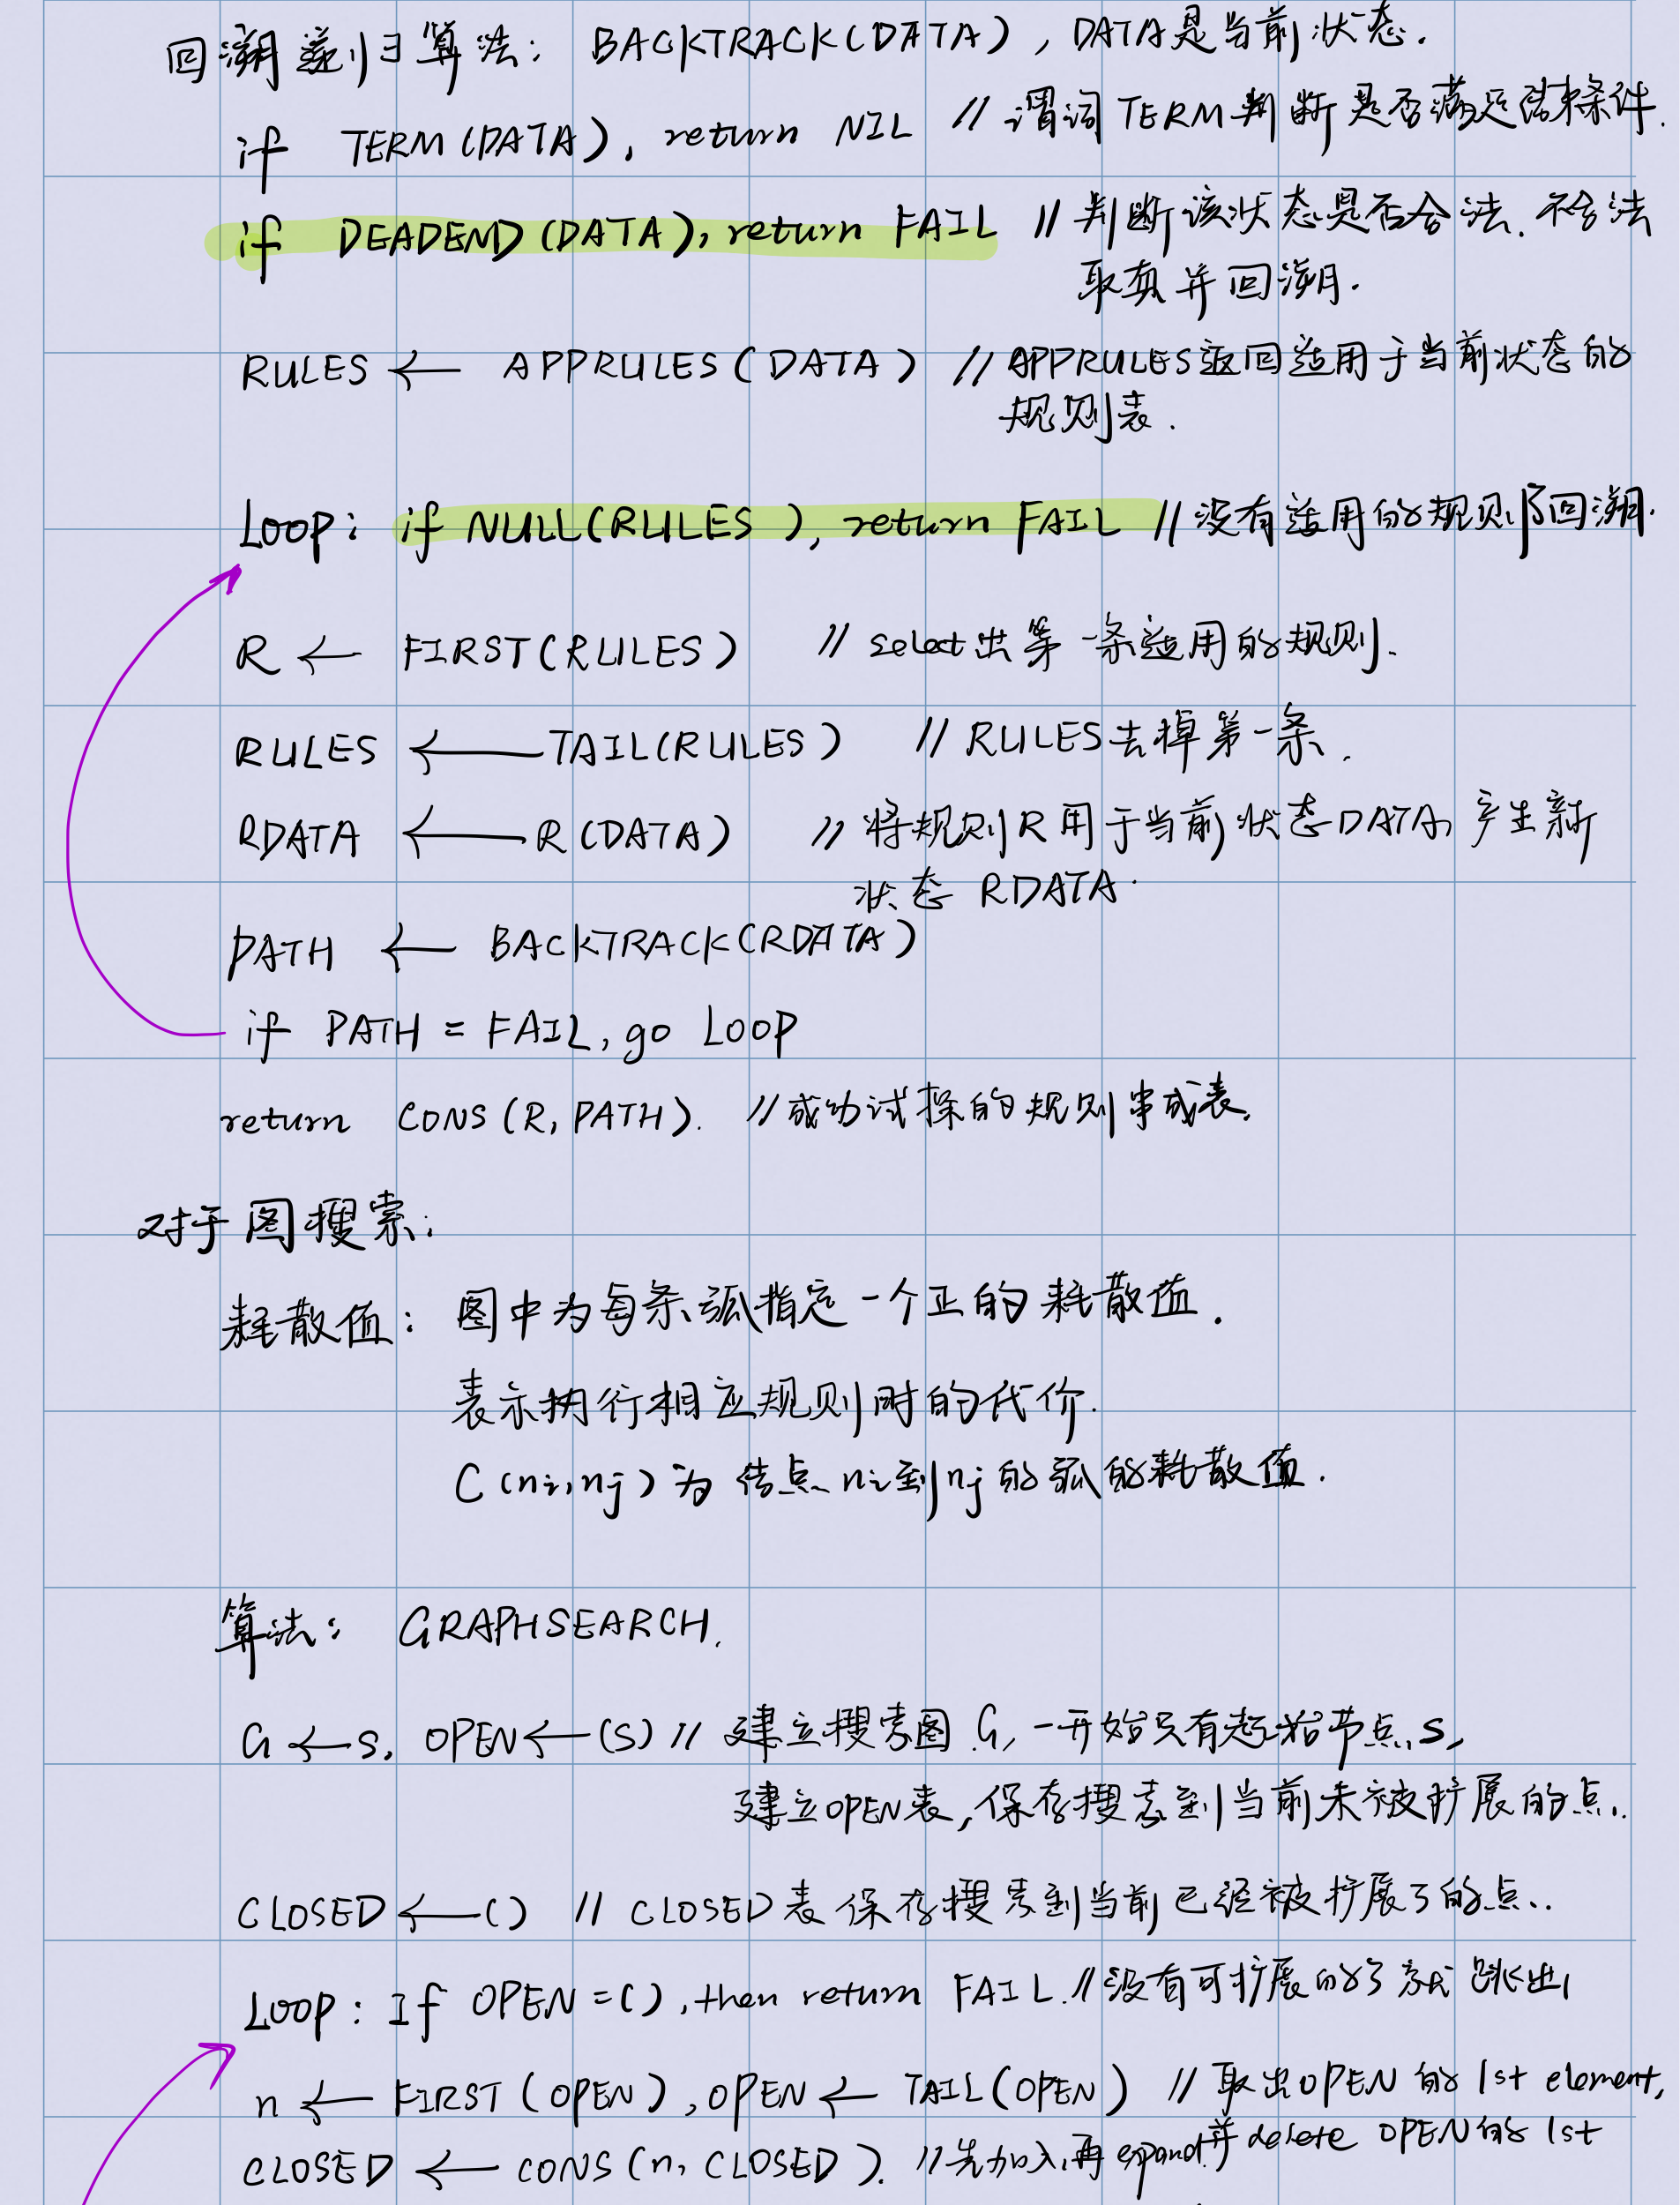 回溯递归算法: BACKTRACK(DATA), DATA是当前状态.
if TERM(DATA), return NIL // 谓词TERM判断是否满足结束条件.
if DEADEND(DATA), return FAIL // 判断该状态是否合法. 不合法
取真并回溯.
RULES ← APPRULES(DATA) // APPRULES返回适用于当前状态的
规则表.
Loop: if NULL(RULES), return FAIL // 没有适用的规则了回溯.
R ← FIRST(RULES) // select出第一条适用的规则.
RULES ← TAIL(RULES) // RULES去掉第一条.
RDATA ← R(DATA) // 将规则R用于当前状态DATA, 产生新
状态 RDATA.
PATH ← BACKTRACK(RDATA)
if PATH = FAIL, go LOOP
return CONS(R, PATH). // 成功试探的规则串成表.
对于图搜索:
耗散值: 图中为每条弧指定一个正的耗散值.
表示执行相应规则时的代价.
C(ni, nj)为结点ni到nj的弧的耗散值.
算法: GRAPHSEARCH.
G ← s, OPEN ← (S) // 建立搜索图G, 一开始只有起始节点s,
建立OPEN表, 保存搜索到当前未被扩展的点.
CLOSED ← () // CLOSED表保存搜索到当前已经被扩展了的点.
Loop: If OPEN = (), then return FAIL. // 没有可扩展的了就跳出
n ← FIRST(OPEN), OPEN ← TAIL(OPEN) // 取出OPEN的1st element,
并delete OPEN的1st
CLOSED ← CONS(n, CLOSED). // 先加入再expand.